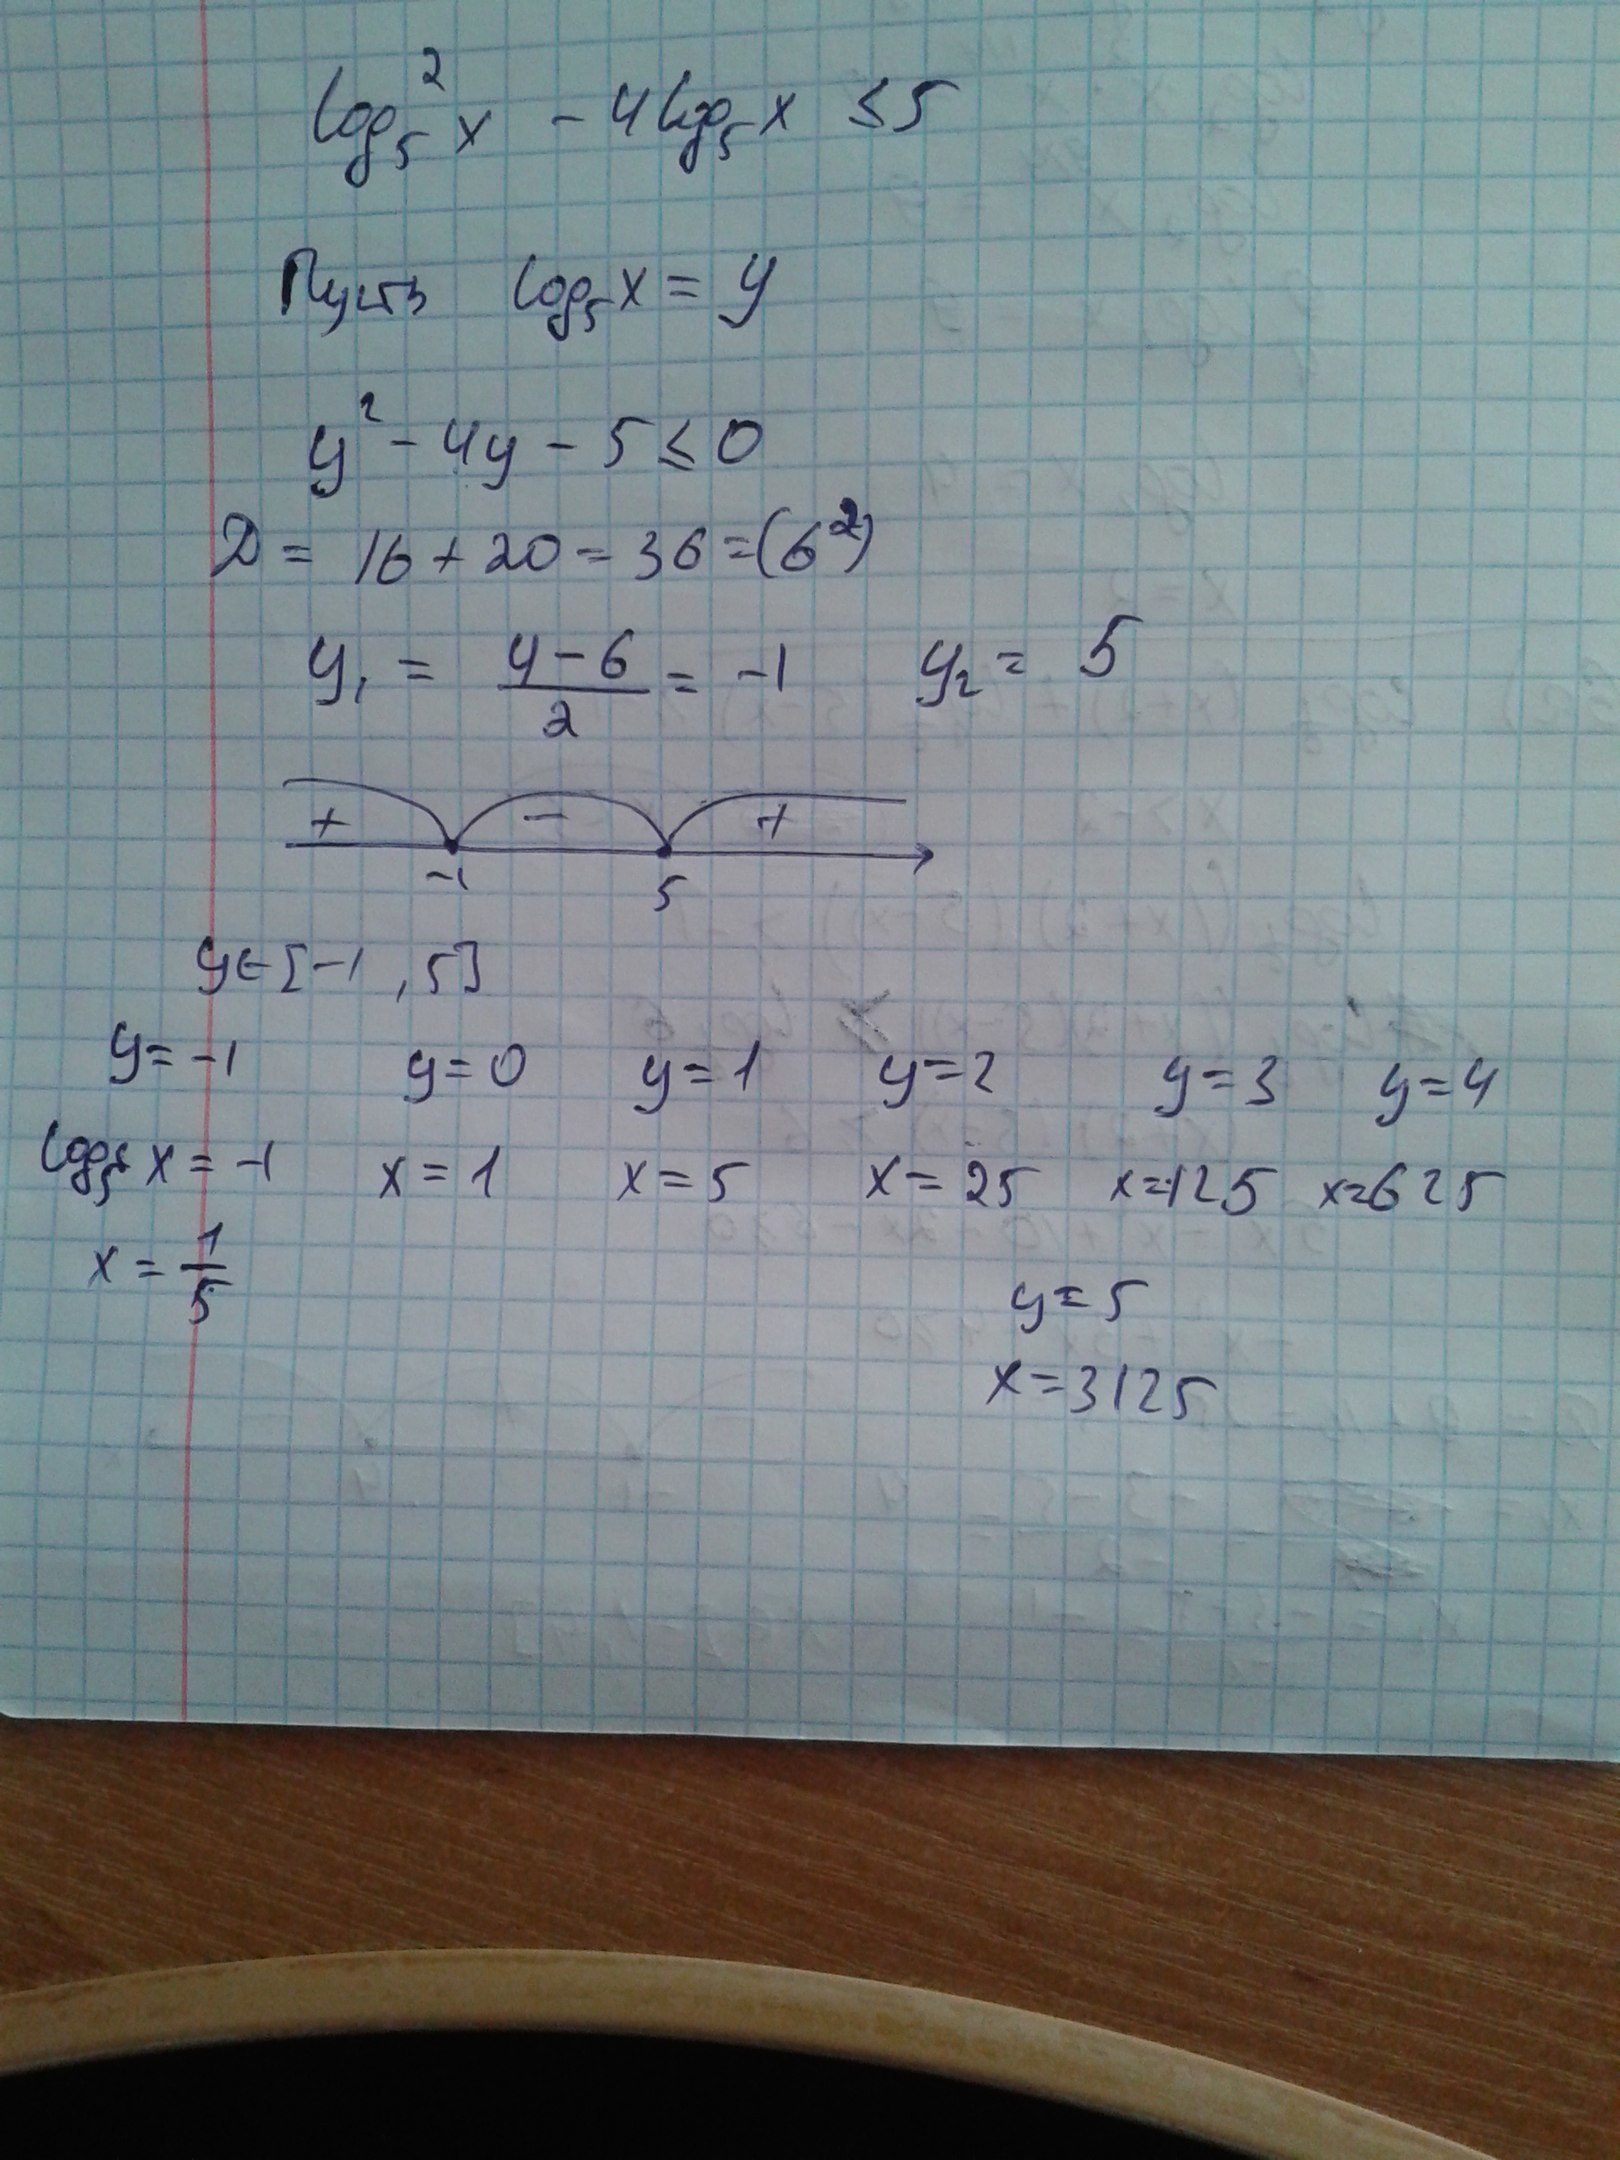 log₅²x - 4log₅x ≤ 5
Пусть log₅x = y
y² - 4y - 5 ≤ 0
D = 16 + 20 = 36 = (6²)
y₁ = (4 - 6)/2 = -1 y₂ = 5
+ - +
-1 5
y ∈ [-1, 5]
y = -1 y = 0 y = 1 y = 2 y = 3 y = 4
log₅x = -1 x = 1 x = 5 x = 25 x = 125 x = 625
x = 1/5
y = 5
x = 3125